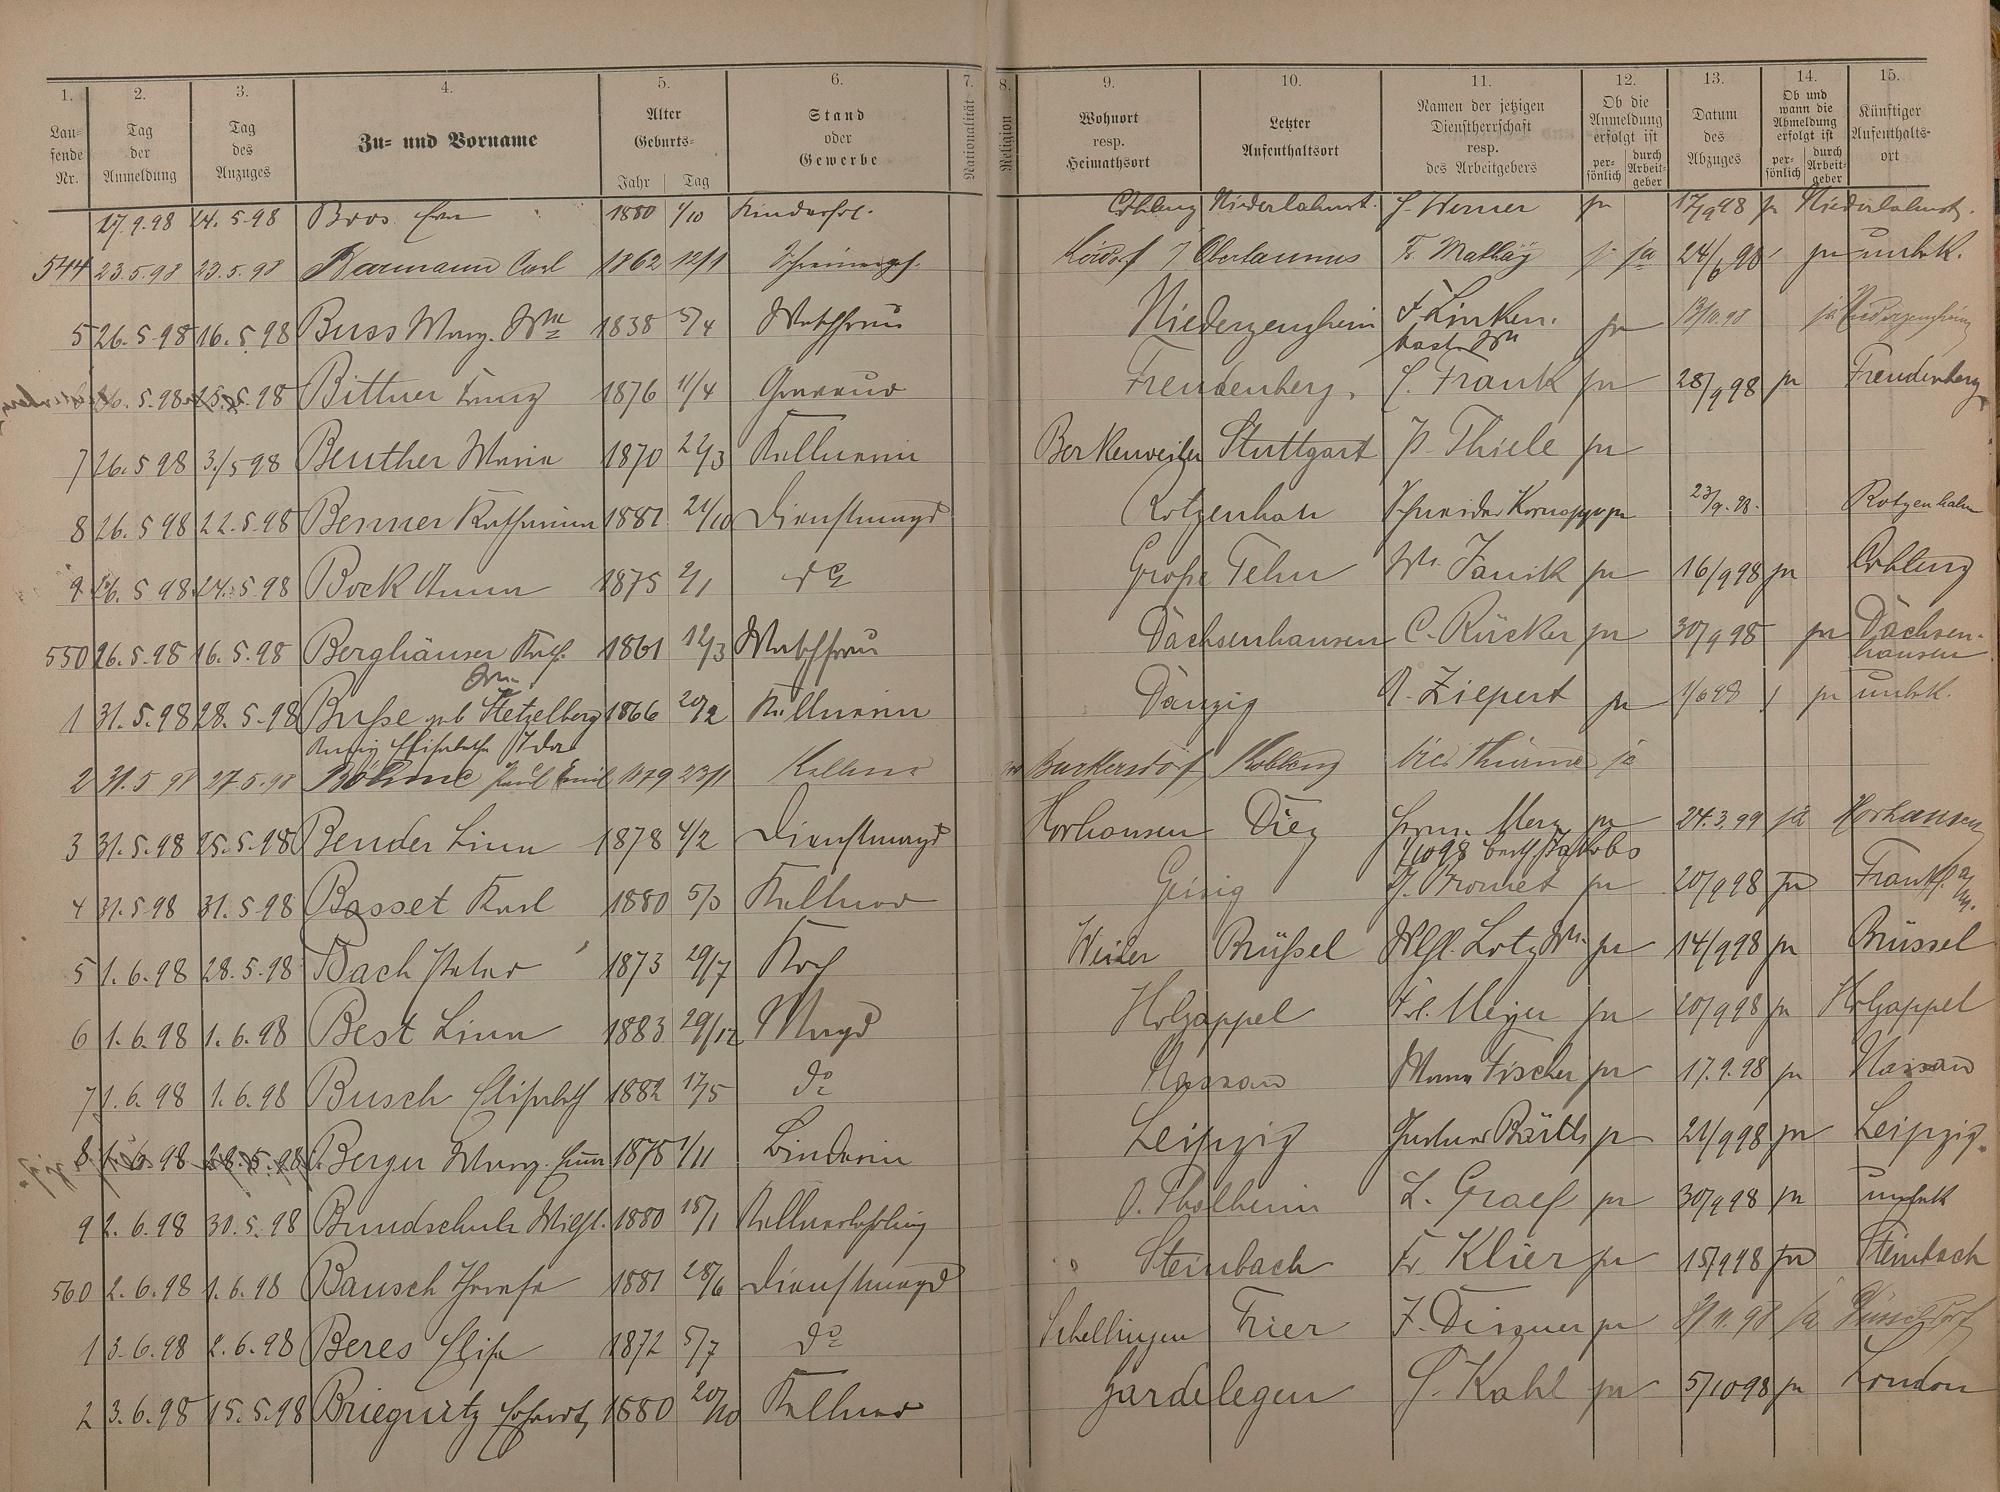 1. 2. 3. 4. 5. 6. 7. 8. 9. 10. 11. 12. 13. 14. 15.
Lau-
fende
Nr.
Tag
der
Anmeldung
Tag
des
Anzuges
Zu- und Vorname
Alter
Geburts-
Jahr Tag
Stand
oder
Gewerbe
Nationalität
Religion
Wohnort
resp.
Heimathsort
Letzter
Aufenthaltsort
Namen der jetzigen
Dienstherrschaft
resp.
des Arbeitgebers
Ob die
Anmeldung
erfolgt ist
per-
sönlich
durch
Arbeit-
geber
Datum
des
Abzuges
Ob und
wann die
Abmeldung
erfolgt ist
per-
sönlich
durch
Arbeit-
geber
Künftiger
Aufenthalts-
ort
17.9.98 14.5.98 Bros 1880 1/10 Coblenz Niederlahnst. Werner ja 17/9 98 ja Niederlahnst.
544 23.5.98 23.5.98 Carl 1862 12/1 Oberlaunus ja 24/6 98 ja unbk.
5 26.5.98 16.5.98 Buss Marg. Wwe 1838 5/4 Waschfrau Niederzeuzheim F. Linken-
bach Ww ja 13/10.98 ja Niederzeuzheim
26.5.98 25.5.98 Bittner Franz 1876 11/4 Freudenberg Frank ja 28/9 98 ja Freudenberg
7 26.5.98 3./5 98 Beuther Maria 1870 22/3 Kellnerin Berkenweiler Stuttgart P. Thiele ja
8 26.5 98 22.5.98 Benner Katharina 1881 21/10 Dienstmagd Rotzenhan Schneider ja 23/9.98. Rotzenhahn
9 26.5 98 24.5.98 Bock Anna 1875 2/1 do Große Tehn Ww. Janik ja 16/9 98 ja Coblenz
550 26.5.98 16.5.98 Berghäuser Kath. 1861 12/3 Waschfrau Dachsenhausen C. Rücker ja 30/9 98 ja Dachsen-
hausen
1 31.5.98 28.5.98 Buße geb Stetzelberg 1866 20/2 Kellnerin Danzig A. Ziepert ja 1/6 98 ja unbk.
Elisabetha Ida
2 31.5 98 27.5.98 Böhme Paul Emil 1879 23/1 Kellner Burkersdorf Koblenz ja
3 31.5.98 25.5.98 Bender Lina 1878 4/2 Dienstmagd Horhausen Diez Herm. Merz ja 24.3.99 ja Horhausen
1/10 98 Jakobs
4 31.5 98 31.5 98 Basset Karl 1880 5/3 Kellner Geisig ja 20/9 98 ja Frankf. a/m.
5 1.6.98 28.5.98 Bach Peter 1873 29/7 Koch Weiler Brüßel Lotz Ww. ja 14/9 98 ja Brüssel
6 1.6.98 1.6.98 Best Lina 1883 29/12 Magd Holzappel Frl. Meyer ja 20/9 98 ja Holzappel
7 1.6.98 1.6.98 Busch Elisabeth 1882 17/5 do Nassau Fischer ja 17.9.98 ja Nassau
8 1.6.98 28.5.98 Berger Marg. 1875 1/11 Binderin Leipzig Gustav ja 21/9 98 ja Leipzig
9 2.6.98 30.5.98 Bundschuh Wilh. 1880 18/1 Kellnerlehrling L. Graef ja 30/9 98 ja unbek
560 2.6.98 1.6.98 Bausch Theresa 1881 28/6 Dienstmagd Steinbach Fr. Klier ja 15/9 98 ja Steinbach
1 3.6.98 2.6.98 Beres Elise 1872 5/7 do Schellingen Trier F. ja ja Düsseldorf
2 3.6.98 15.5.98 Briegnitz 1880 20/10 Kellner Gardelegen Kahl ja 5/10 98 ja London